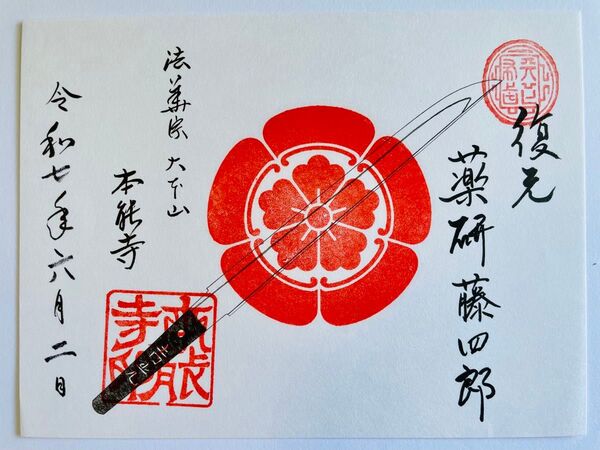 復元
薬研藤四郎
法華宗 大本山
本能寺
令和七年六月二日
吉光
本能寺印